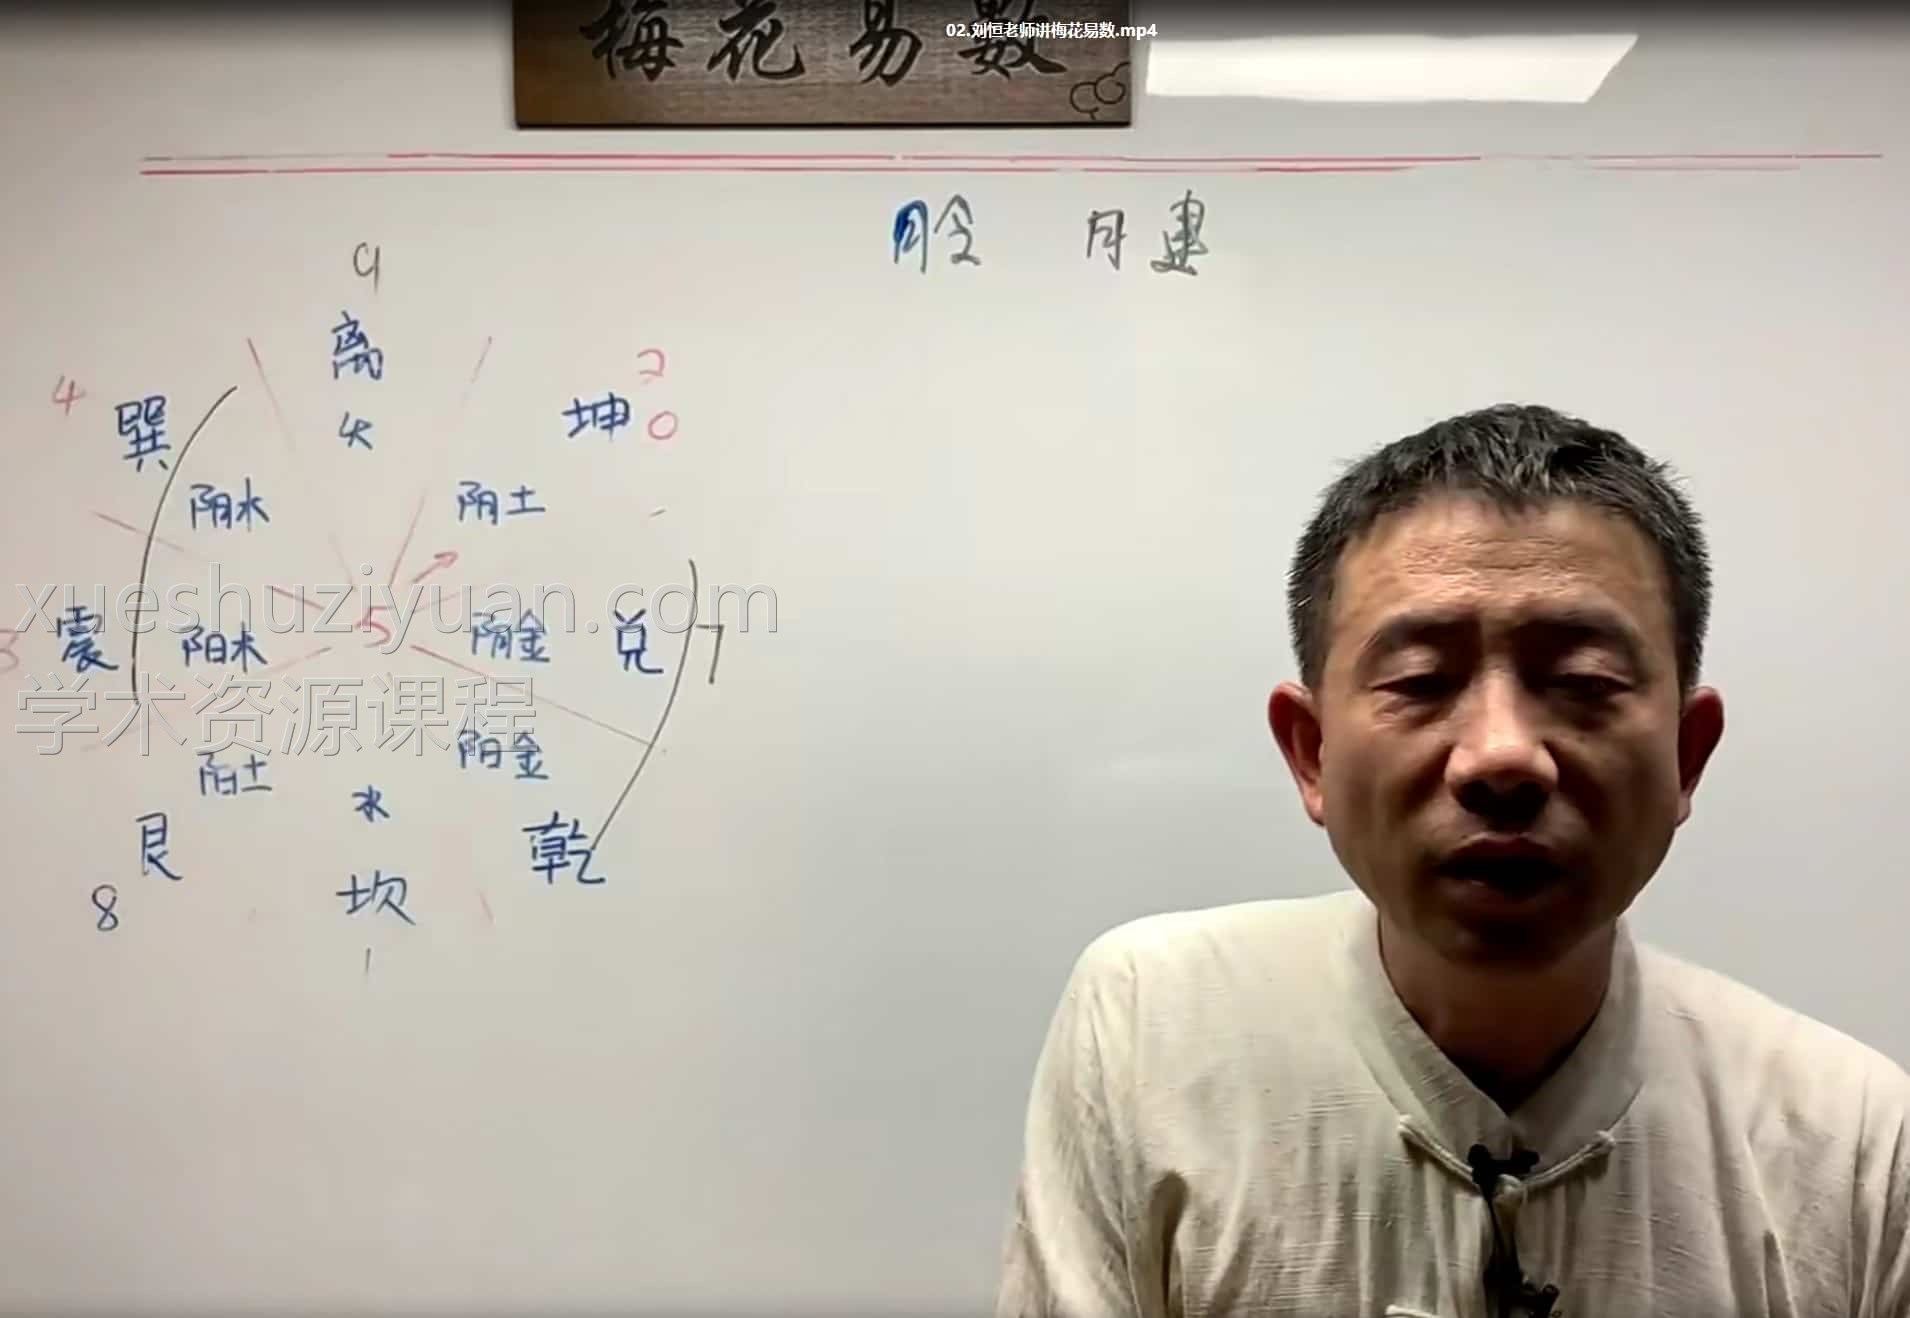 02.刘恒老师讲梅花易数.mp4
梅花易數
月令 月建
9
离
火
2
坤 0
阴土
4
巽
阴木
xueshuziyuan.com
3 震 阳木
5
阴金 兑 7
学术资源课程
阳土
艮
8
阳金
乾
水
坎
1